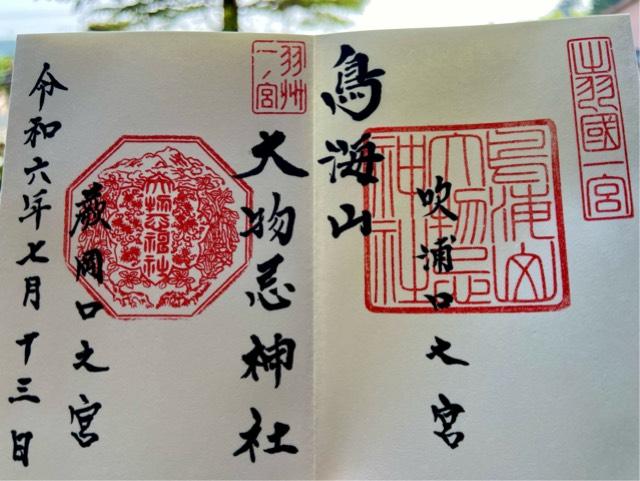 出羽國一宮
鳥海山
鳥海山
大物忌
神社
吹浦口之宮
羽州
一ノ宮
大物忌神社
大物忌神社
蕨岡口之宮
令和六年七月十三日